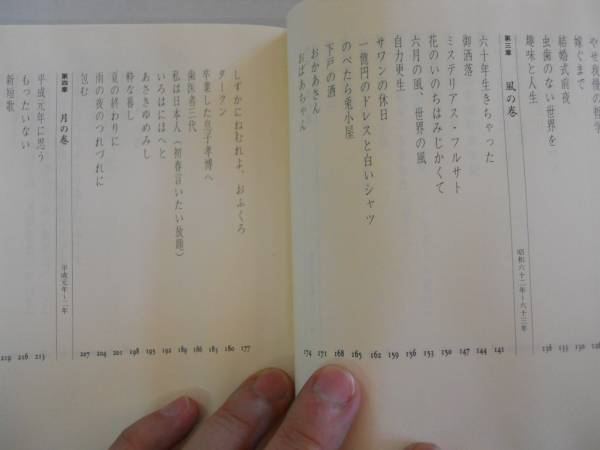 やせ我慢の哲学
嫁ぐまで
結婚式前夜
虫歯のない世界を
趣味と人生
第三章 風の巻 昭和六十二年~六十三年
六十年生きちゃった 141
御洒落 144
ミステリアス・フルサト 147
花のいのちはみじかくて 150
六月の風、世界の風 153
自力更生 156
サワンの休日 159
一億円のドレスと白いシャツ 162
のべたら兎小屋 165
下戸の酒 168
おかあさん 171
おばあちゃん 174
しずかにねむれよ、おふくろ 177
タークン 180
卒業した息子孝博へ 183
歯医者三代 186
私は日本人(初春言いたい放題) 189
いろはにほへと 192
あさきゆめみし 195
粋な暮し 198
夏の終わりに 201
雨の夜のつれづれに 204
包む 207
第四章 月の巻 平成元年~二年
平成元年に思う 213
もったいない 216
新短歌 219